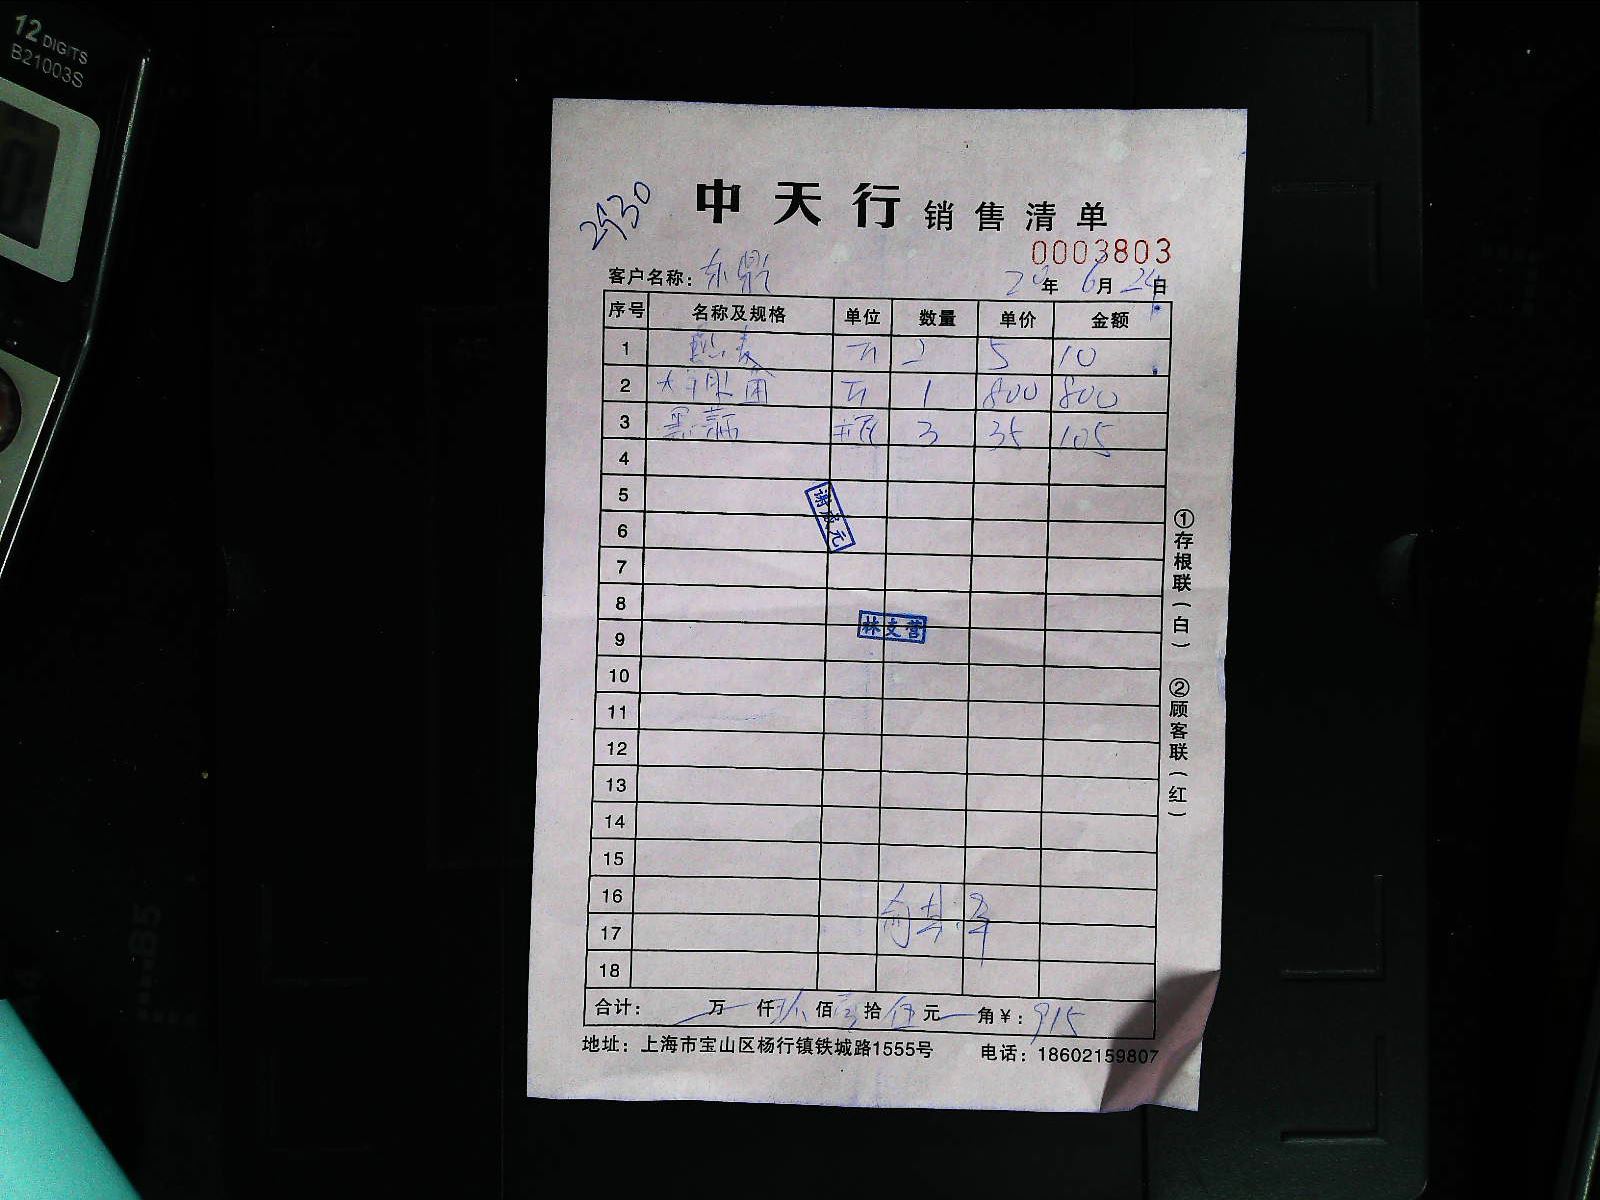 12 DIGITS
B21003S
2930
中天行 销售清单
0003803
客户名称：东鼎 20年6月24日
序号 名称及规格 单位 数量 单价 金额
1 2 5 10
2 1 800 800
3 瓶 3 35 105
4
5
谢成元
6
7
8
林支营
9
10
11
12
13
14
15
16
17
18
合计： 万 仟 玖 佰 壹 拾 伍 元 角￥：915
地址：上海市宝山区杨行镇铁城路1555号 电话：18602159807
①存根联（白）
②顾客联（红）